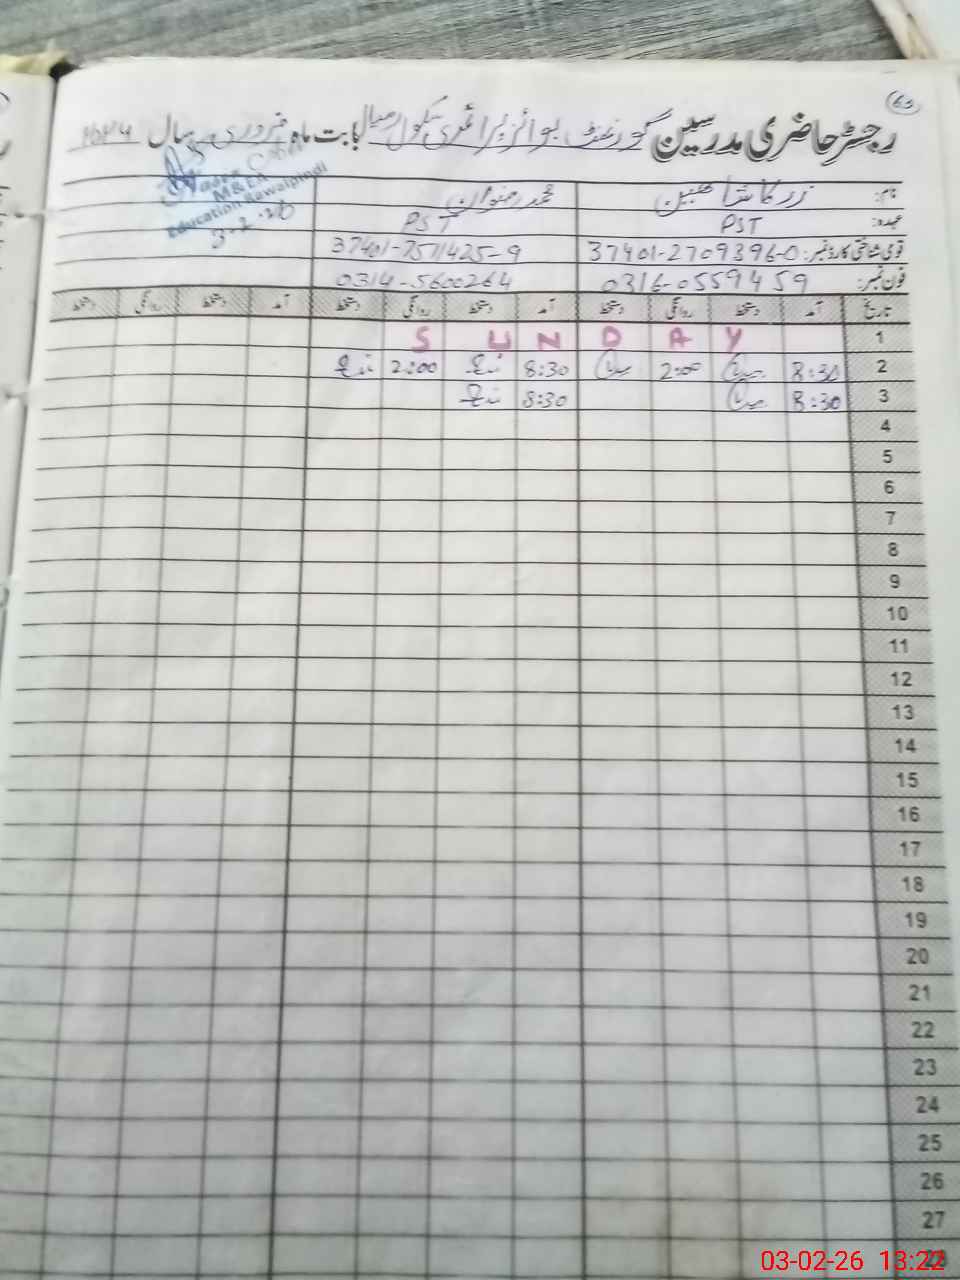 60
رجسٹر حاضری مدرسین گورنمنٹ بوائز پرائمری سکول رمیال بابت ماہ فروری سال ۲۰۲۶
M&EA
Education Rawalpindi
3-2-26
نام: محمد رضوان
عہدہ: PST PST
قومی شناختی کارڈ نمبر: 37401-2709396-0 37401-7571425-9
فون نمبر: 0316-0559459 0314-5600264
تاریخ آمد دستخط روانگی دستخط آمد دستخط روانگی دستخط آمد دستخط روانگی دستخط
1 S U N D A Y
2 8:30 2:00 8:30 2:00
3 8:30 8:30
4
5
6
7
8
9
10
11
12
13
14
15
16
17
18
19
20
21
22
23
24
25
26
27
28
03-02-26 13:22